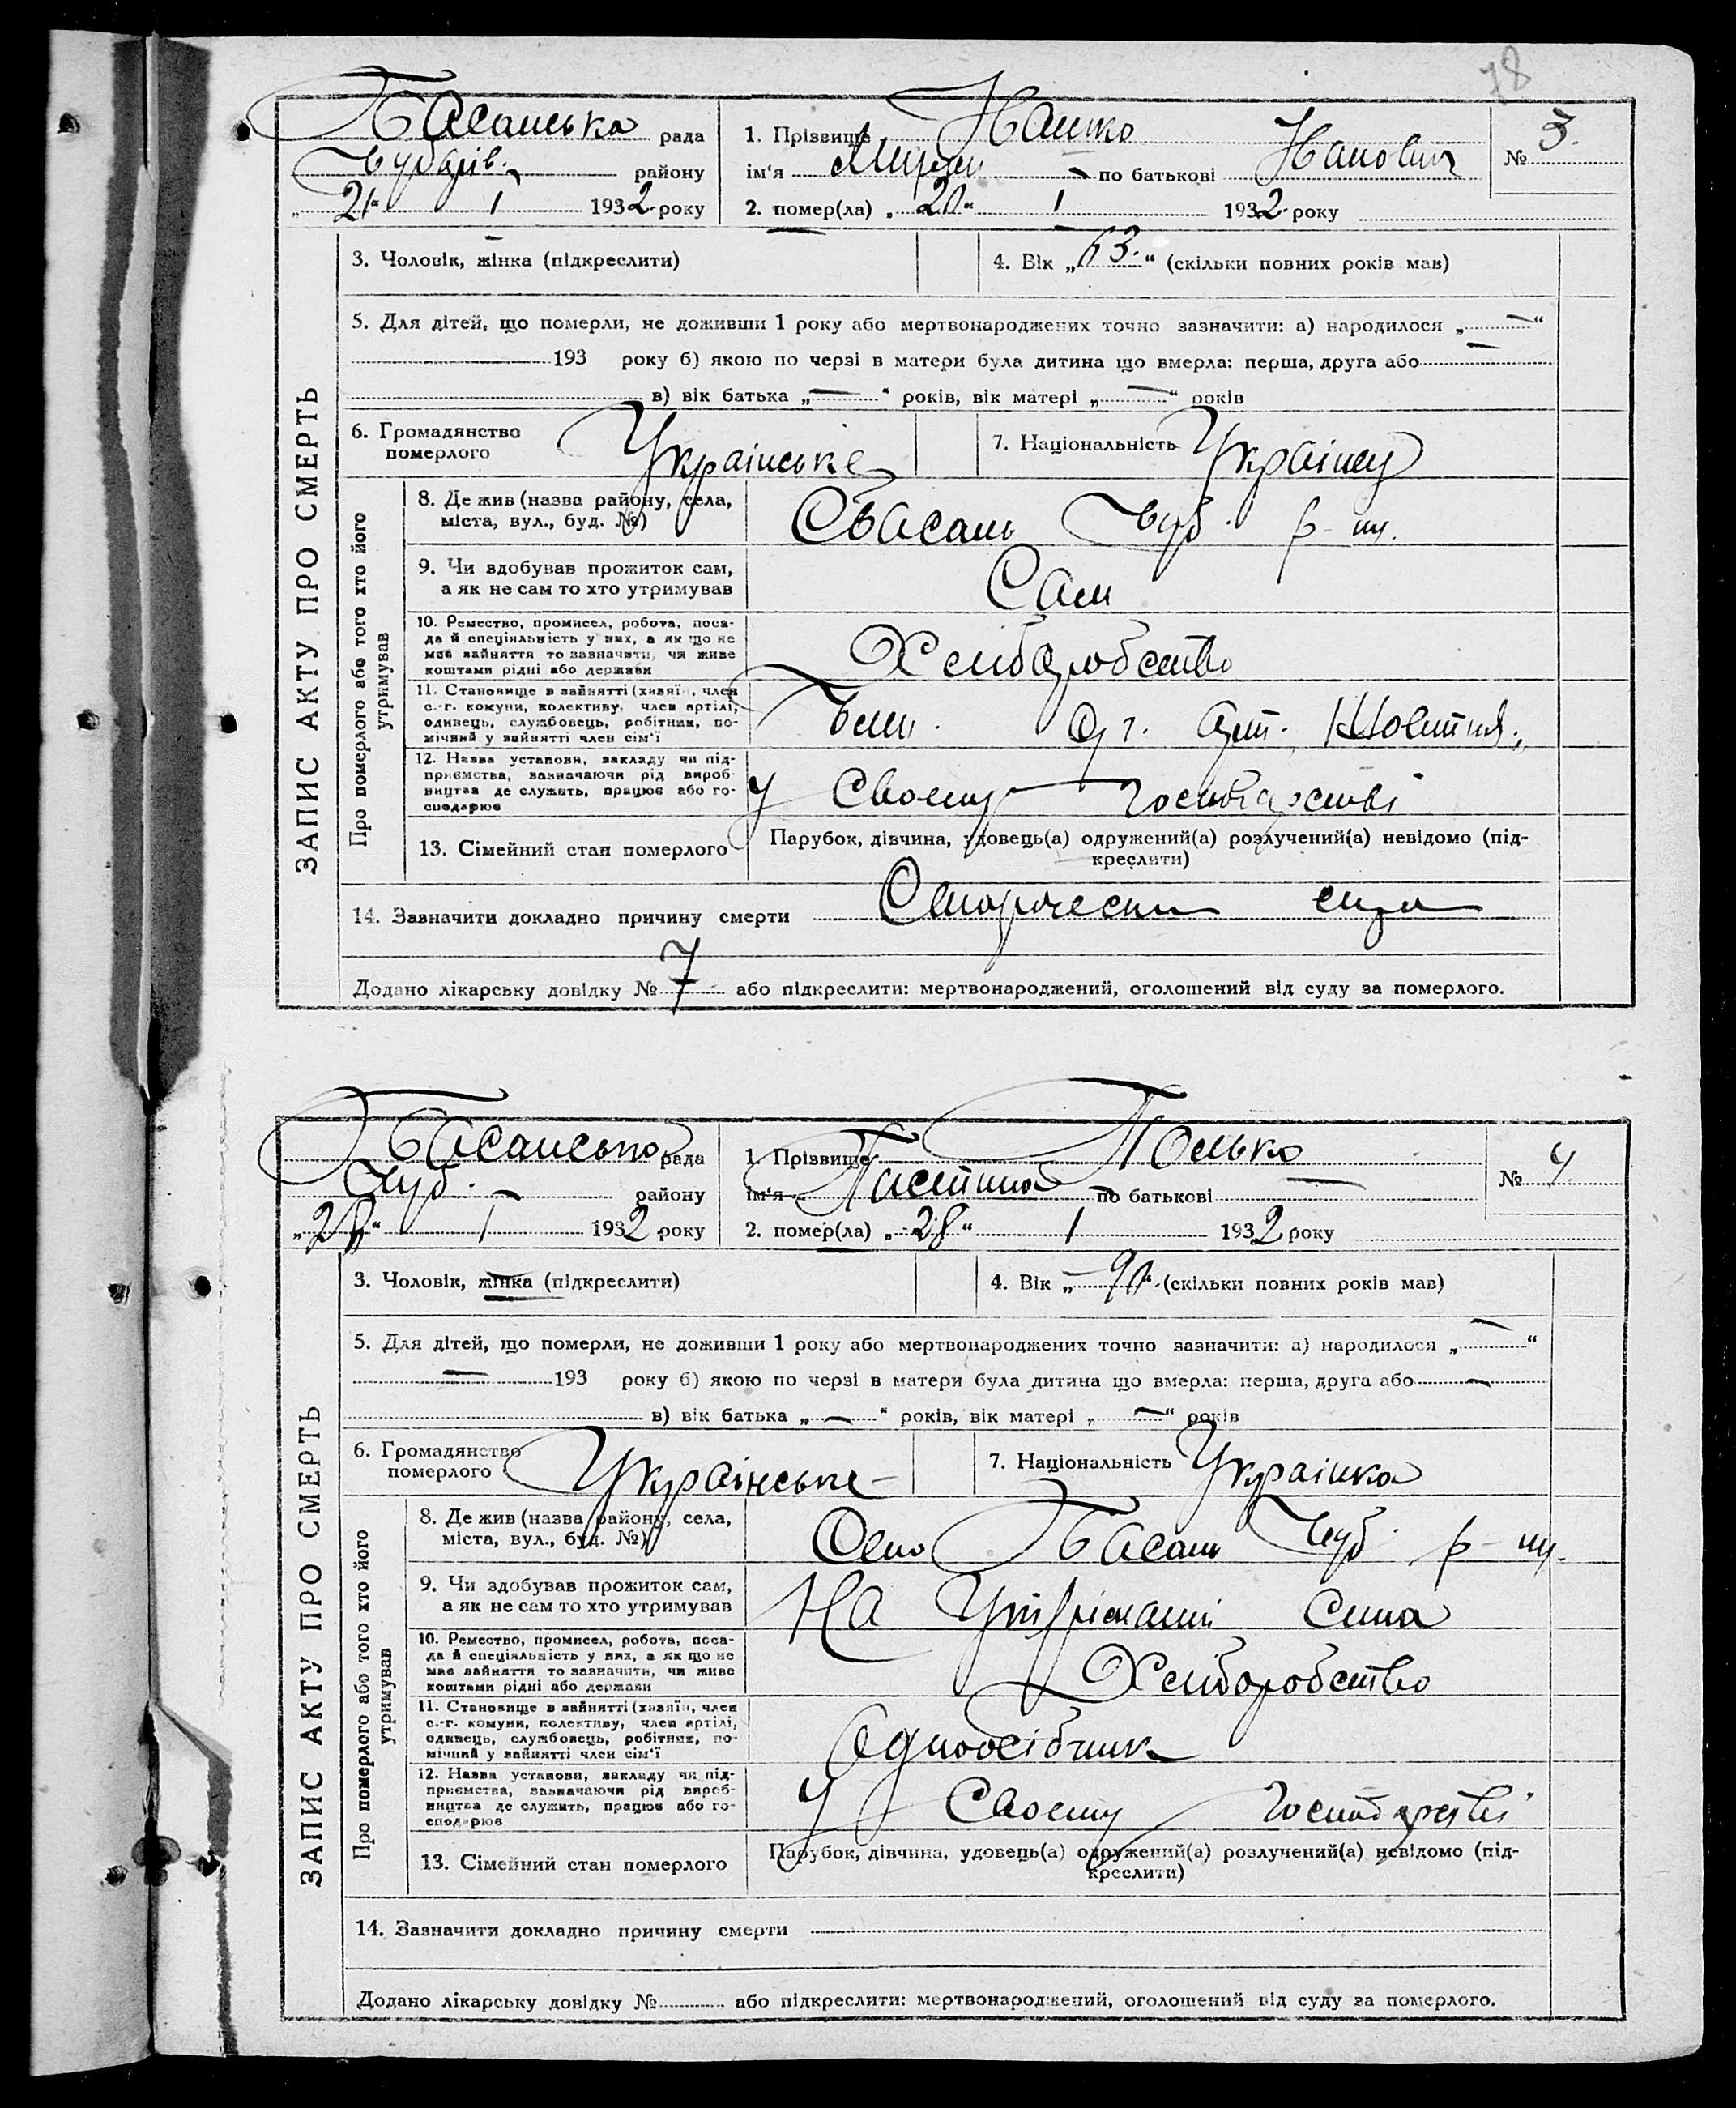 78
Басанська рада
Чубарів. району
„21“ I 1932 року
1. Прізвище
ім‘я по батькові
2. помер(ла) „20“ I 1932 року
№ 3.
ЗАПИС АКТУ ПРО СМЕРТЬ
3. Чоловік, жінка (підкреслити)
4. Вік „63.“ (скільки повних років мав)
5. Для дітей, що померли, не доживши 1 року або мертвонароджених точно зазначити: а) народилося „—“
193 року б) якою по черзі в матери була дитина що вмерла: перша, друга або —
в) вік батька „—“ років, вік матері „—“ років
6. Громадянство померлого Українське
7. Національність Українец
Про померлого або того хто його утримував
8. Де жив (назва району, села,
міста, вул., буд. №)
С Басань Чуб. р-ну.
9. Чи здобував прожиток сам,
а як не сам то хто утримував
Сам
10. Ремество, промисел, робота, поса-
да й спеціяльність у них, а як що не
має зайняття то зазначити, чи живе
коштами рідні або держави
Хлиборобство
11. Становище в зайнятті (хазяїн, член
с.-г. комуни, колективу, член артілі,
одинець, службовець, робітник, по-
мічний у зайнятті член сім‘ї
Член. арт.
12. Назва установи, закладу чи під-
приємства, зазначаючи рід вироб-
ництва де служить, працює або го-
сподарює
У Своему господарстві
13. Сімейний стан померлого
Парубок, дівчина, удовець(а) одружений(а) розлучений(а) невідомо (під-
креслити)
14. Зазначити докладно причину смерти
Додано лікарську довідку № 7 або підкреслити: мертвонароджений, оголошений від суду за померлого.
Басанська рада
Чуб. — району
„28“ I 1932 року
1. Прізвище
ім‘я по батькові —
2. помер(ла) „28“ I 1932 року
№ 4.
ЗАПИС АКТУ ПРО СМЕРТЬ
3. Чоловік, жінка (підкреслити)
4. Вік „90“ (скільки повних років мав)
5. Для дітей, що померли, не доживши 1 року або мертвонароджених точно зазначити: а) народилося „—“
— 193 року б) якою по черзі в матери була дитина що вмерла: перша, друга або —
в) вік батька „—“ років, вік матері „—“ років
6. Громадянство померлого Українське
7. Національність Українка
Про померлого або того хто його утримував
8. Де жив (назва району, села,
міста, вул., буд. №)
Село Басань Чуб. р-ну.
9. Чи здобував прожиток сам,
а як не сам то хто утримував
На утріманні Сина
10. Ремество, промисел, робота, поса-
да й спеціяльність у них, а як що не
має зайняття то зазначити, чи живе
коштами рідні або держави
Хлиборобство
11. Становище в зайнятті (хазяїн, член
с.-г. комуни, колективу, член артілі,
одинець, службовець, робітник, по-
мічний у зайнятті член сім‘ї
Одноосібник
12. Назва установи, закладу чи під-
приємства, зазначаючи рід вироб-
ництва де служить, працює або го-
сподарює
У Своему господарстві
13. Сімейний стан померлого
Парубок, дівчина, удовець(а) одружений(а) розлучений(а) невідомо (під-
креслити)
14. Зазначити докладно причину смерти
Додано лікарську довідку № або підкреслити: мертвонароджений, оголошений від суду за померлого.